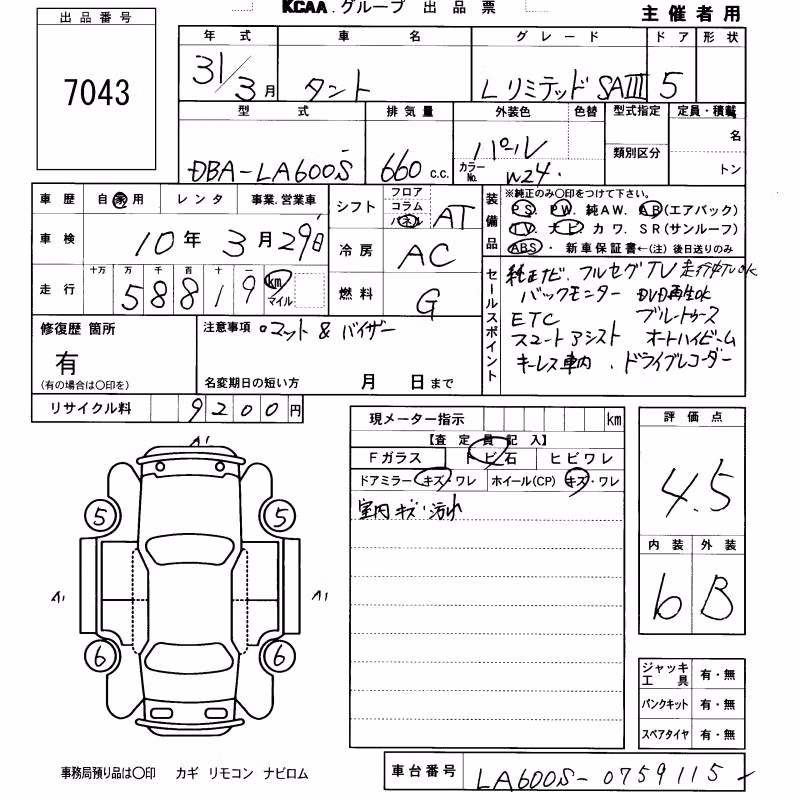 KCAA.グループ 出品票
主催者用
出品番号
7043
年式 車名 グレード ドア 形状
31/3月 タント Lリミテッド SAⅢ 5
型式 排気量 外装色 色替 型式指定 定員・積載
DBA-LA600S 660 c.c. パール 名
カラーNo. W24. 類別区分 トン
車歴 自家用 レンタ 事業.営業車
車検 10年3月29日
走行 十万 万 千 百 十 一
58819 km マイル
シフト フロア コラム パネル AT
冷房 AC
燃料 G
装備品
※純正のみ〇印をつけて下さい。
PS. PW. 純AW. AB(エアバック)
TV. ナビ カワ. SR(サンルーフ)
ABS・新車保証書←(注)後日送りのみ
セールスポイント
純正ナビ. フルセグTV 走行中TVOK
バックモニター DVD再生OK
ETC ブルートゥース
スマートアシスト オートハイビーム
キーレス車内. ドライブレコーダー
修復歴 箇所
有
(有の場合は〇印を)
注意事項 マット & バイザー
名変期日の短い方 月 日まで
リサイクル料 9200円
現メーター指示 km
【査定員記入】
Fガラス トビ石 ヒビワレ
ドアミラー キズ・ワレ ホイール(CP) キズ・ワレ
室内キズ・汚れ
評価点
4.5
内装 外装
6 B
A1
5 5
A1 A1
6 6
ジャッキ工具 有・無
パンクキット 有・無
スペアタイヤ 有・無
事務局預り品は〇印 カギ リモコン ナビロム
車台番号 LA600S-0759115